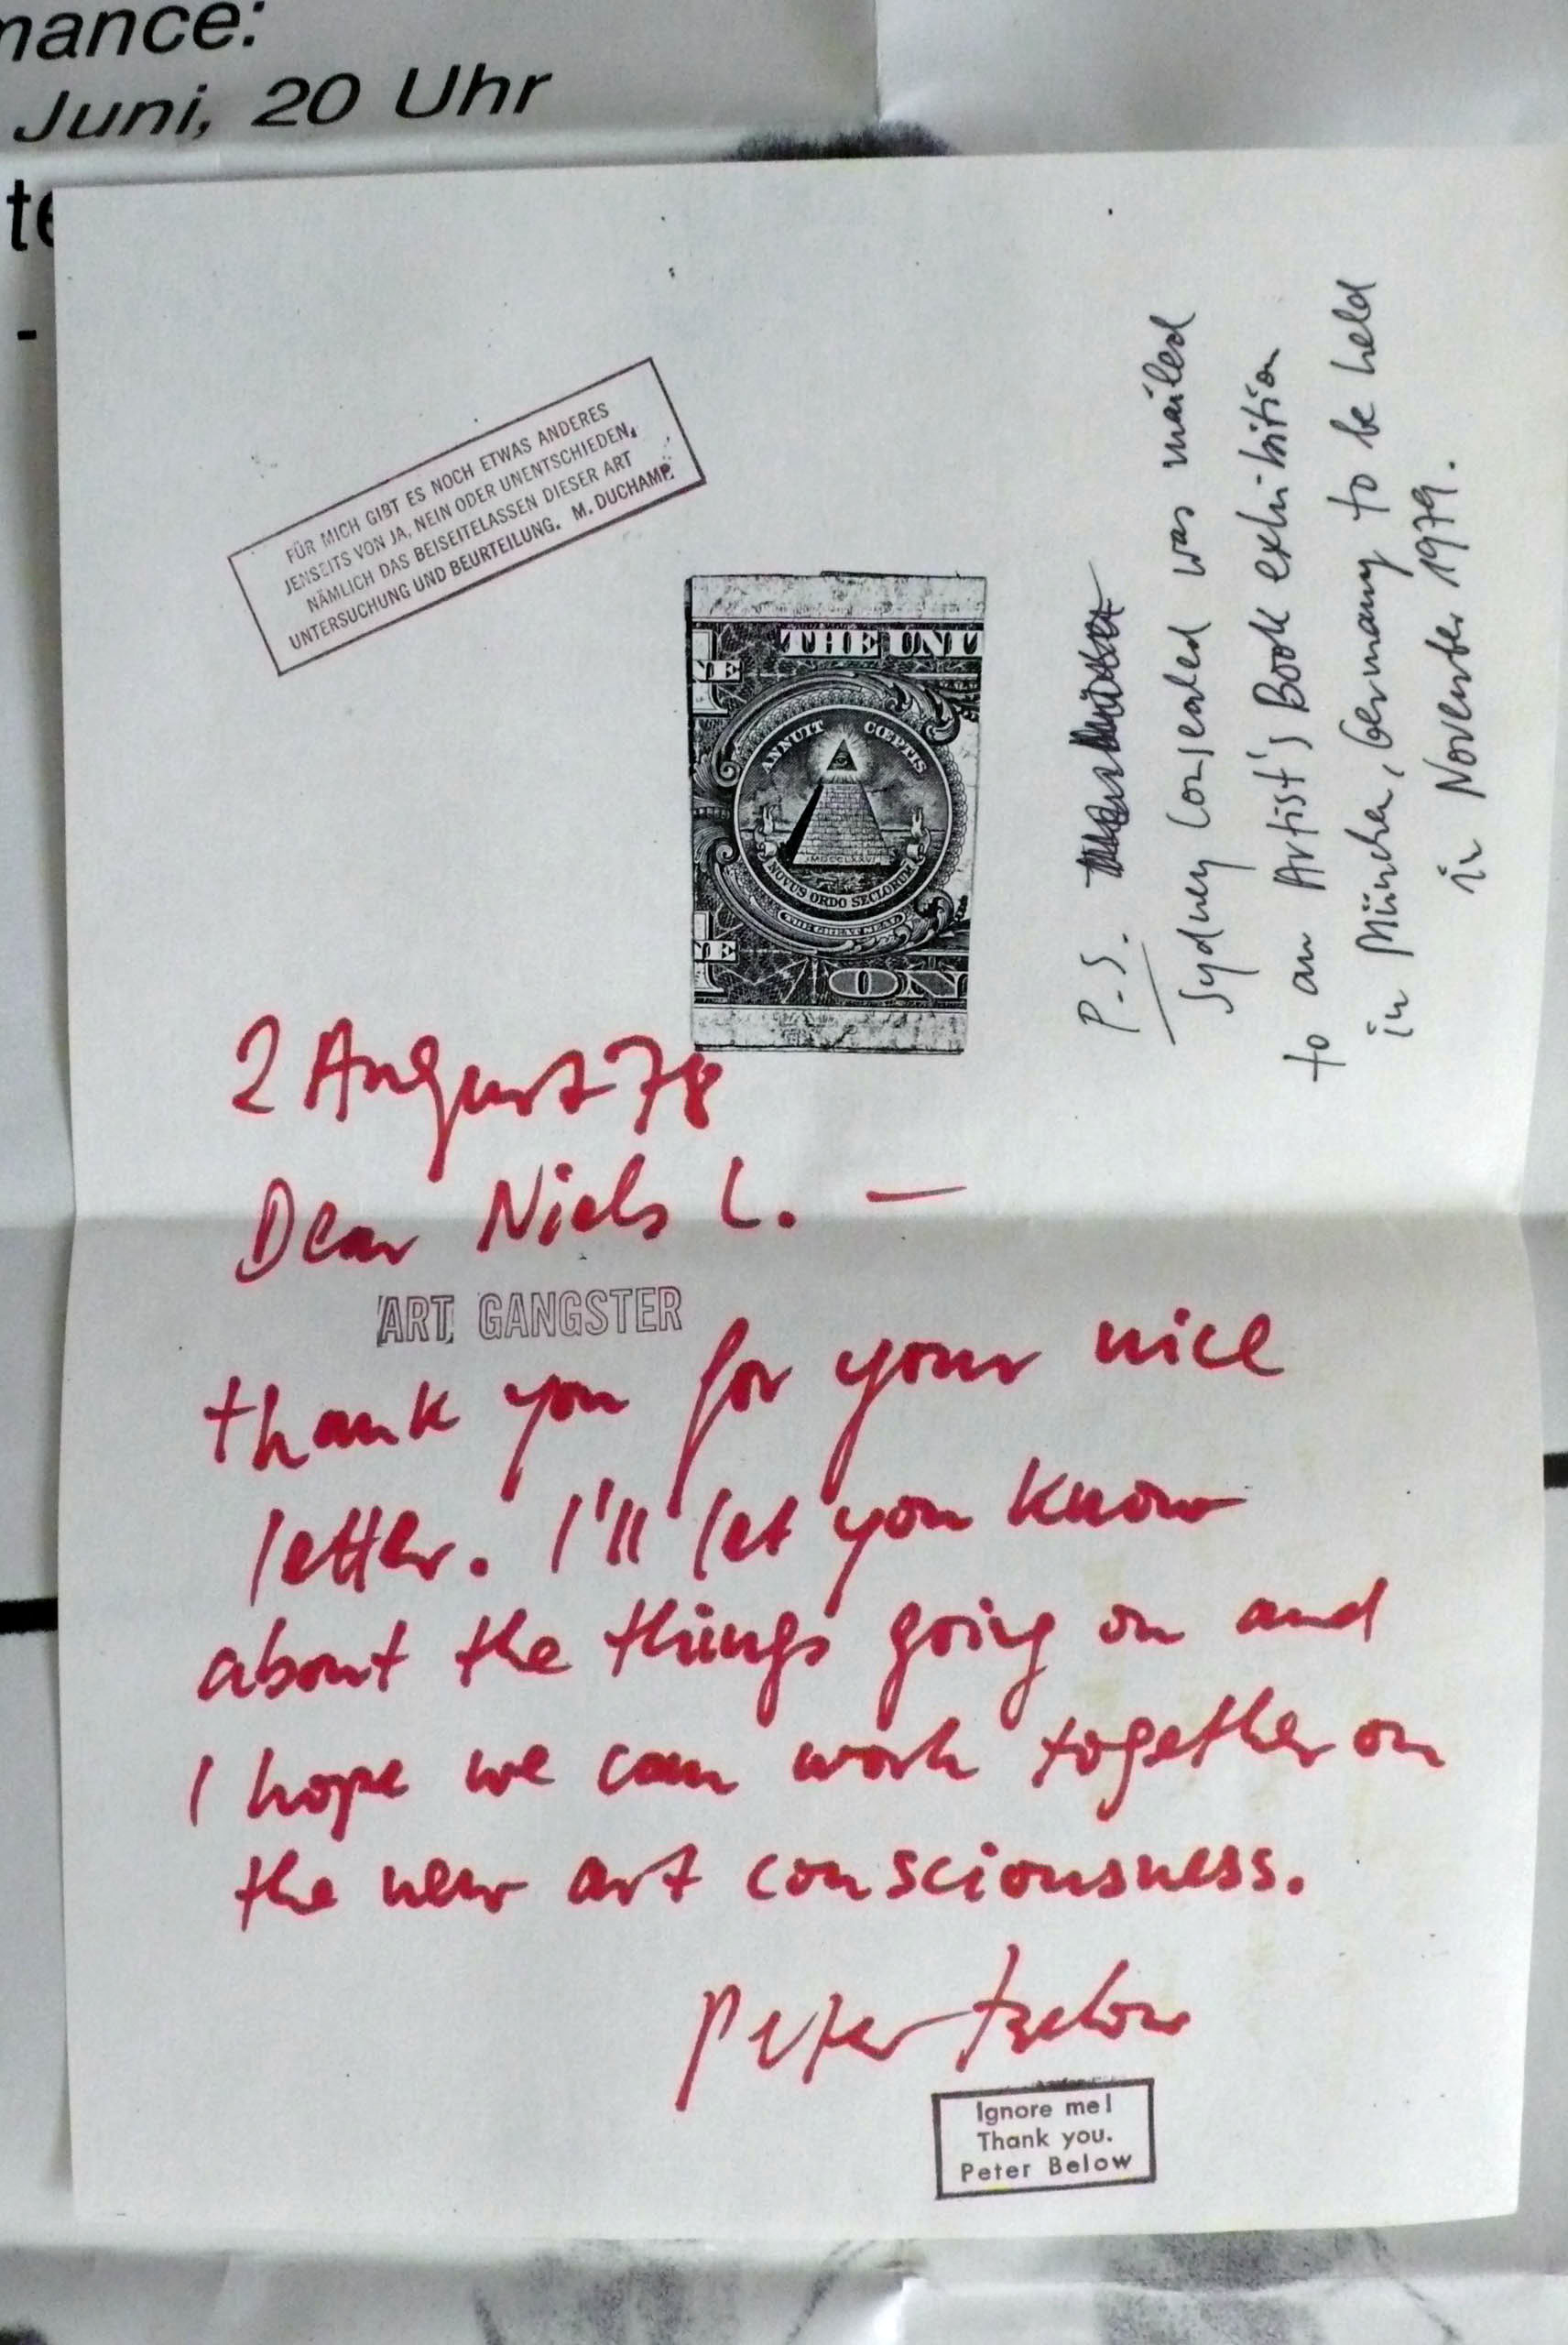 mance:
Juni, 20 Uhr
te
-
FÜR MICH GIBT ES NOCH ETWAS ANDERES
JENSEITS VON JA, NEIN ODER UNENTSCHIEDEN,
NÄMLICH DAS BEISEITELASSEN DIESER ART
UNTERSUCHUNG UND BEURTEILUNG. M. DUCHAMP
THE UNI
NE
ANNUIT CŒPTIS
MDCCLXXVI
NOVUS ORDO SECLORUM
THE GREAT SEAL
NE
ON
P.S.
Sydney was mailed
to an Artist's Book exhibition
in München, Germany to be held
in November 1979.
2 August 78
Dear Niels L. —
ART GANGSTER
thank you for your nice
letter. I'll let you know
about the things going on and
I hope we can work together on
the new art consciousness.
Peter Below
Ignore me!
Thank you.
Peter Below